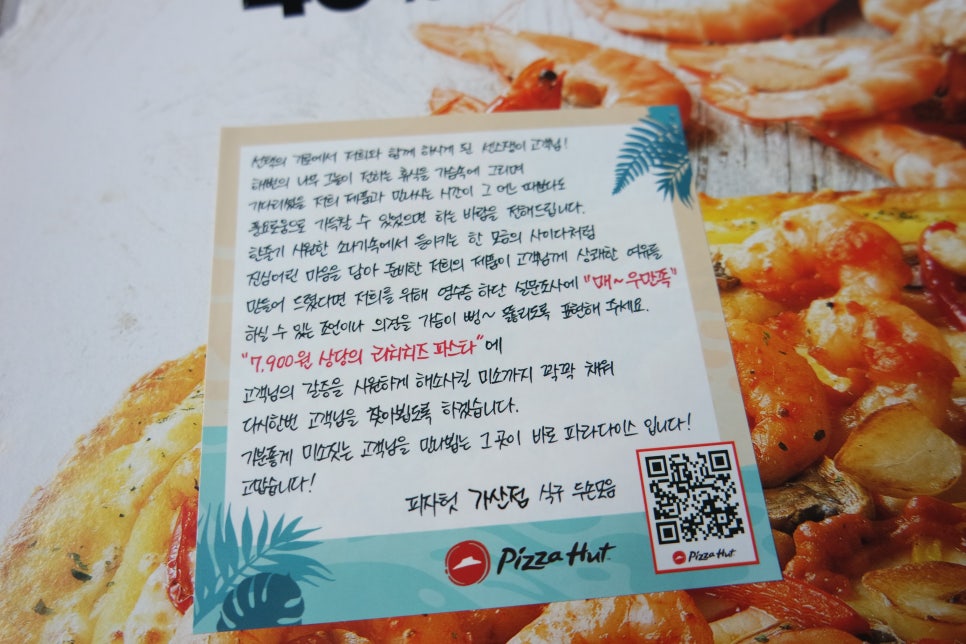 선택의 기로에서 저희와 함께 하시게 된 선소장이 고객님!
해변의 나무 그늘이 전하는 휴식을 가슴속에 그리며
기다리셨을 저희 제품과 만나시는 시간이 그 어느 때보다도
풍요로움으로 가득찰 수 있었으면 하는 바람을 전해드립니다.
한줄기 시원한 소나기속에서 들이키는 한 모금의 사이다처럼
진심어린 마음을 담아 준비한 저희의 제품이 고객님께 상쾌한 여유를
만들어 드렸다면 저희를 위해 영수증 하단 설문조사에 "매~우만족"
하실 수 있는 조언이나 의견을 가슴이 뻥~ 뚫리도록 표현해 주세요.
"7,900원 상당의 리치치즈 파스타"에
고객님의 갈증을 시원하게 해소시킬 미소까지 꽉꽉 채워
다시한번 고객님을 찾아뵙도록 하겠습니다.
기분좋게 미소짓는 고객님을 만나뵙는 그 곳이 바로 파라다이스 입니다!
고맙습니다!
피자헛 가산점 식구 두손모음
Pizza Hut
Pizza Hut